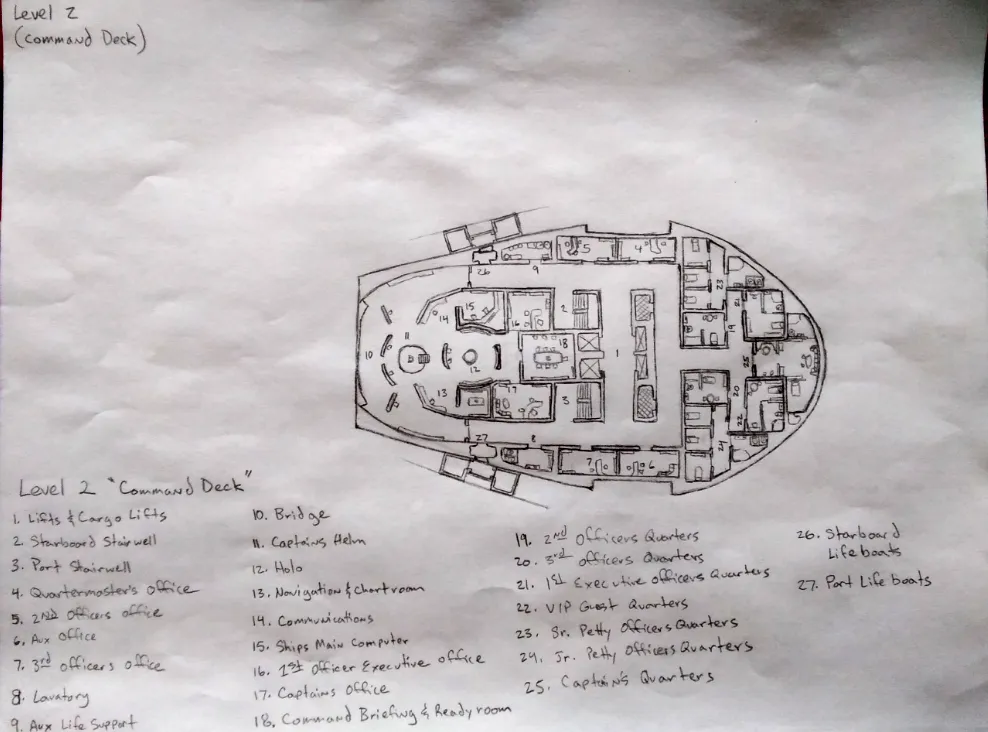 Level 2
(Command Deck)
26
9
5
4
23
15
14
16
2
21
19
11
10
18
1
12
25
13
17
3
20
22
24
27
8
7
6
Level 2 "Command Deck"
1. Lifts & Cargo Lifts
2. Starboard Stairwell
3. Port Stairwell
4. Quartermaster's office
5. 2ND Officers office
6. Aux Office
7. 3rd officers office
8. Lavatory
9. Aux Life Support
10. Bridge
11. Captains Helm
12. Holo
13. Navigation & Chartroom
14. Communications
15. Ships Main Computer
16. 1st Officer Executive office
17. Captains Office
18. Command Briefing & Ready room
19. 2nd Officers Quarters
20. 3rd officers Quarters
21. 1st Executive officers Quarters
22. VIP Guest Quarters
23. Sr. Petty Officers Quarters
24. Jr. Petty Officers Quarters
25. Captain's Quarters
26. Starboard
Life boats
27. Port Life boats